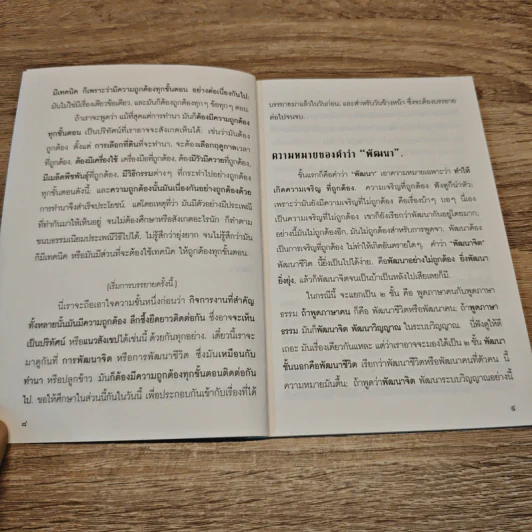 มีเทคนิค ก็เพราะว่ามีความถูกต้องทุกขั้นตอน อย่างต่อเนื่องกันไป.
มันไม่ใช่มีเรื่องเดียวข้อเดียว, และมันก็ต้องถูกทุกๆ ข้อทุกๆ ตอน.
ถ้าเราจะพูดว่า แม้ที่สุดแต่การทำนา มันก็ต้องมีความถูกต้อง
ทุกขั้นตอน เป็นปริทัศน์ที่เราอาจจะสังเกตเห็นได้: เช่นว่ามันต้อง
ถูกต้อง ตั้งแต่ การเลือกที่ดินที่จะทำนา, จะต้องเลือกฤดูกาลเวลา
ที่ถูกต้อง, ต้องมีเครื่องใช้ เครื่องมือที่ถูกต้อง, ต้องมีวัวมีควายที่ถูกต้อง,
มีเมล็ดพืชพันธุ์ที่ถูกต้อง, มีวิธีกรรมต่างๆ ที่กระทำไปอย่างถูกต้อง
ทุกขั้นตอนดังนี้. และความถูกต้องนั้นมันเนื่องกันอย่างถูกต้องด้วย
การทำนาจึงสำเร็จประโยชน์. แต่โดยเหตุที่ว่า มันมีตัวอย่างมีประเพณี
ที่ทำกันมาให้เห็นอยู่ จนไม่ต้องศึกษาหรือสังเกตอะไรนัก ก็ทำตาม
ขนบธรรมเนียมประเพณีวิธีไปได้. ไม่รู้สึกว่ายุ่งยาก, จนไม่รู้สึกว่ามัน
ก็มีเทคนิค หรือมันมีส่วนที่จะต้องใช้เทคนิค ให้ถูกต้องทุกขั้นตอน.
(เริ่มการบรรยายครั้งนี้.)
นี่เราจะถือเอาใจความชั้นหนึ่งก่อนว่า กิจการงานที่สำคัญ
ทั้งหลายนั้นมันมีความถูกต้อง ลึกซึ้งยืดยาวติดต่อกัน ซึ่งอาจจะเห็น
เป็นปริทัศน์ หรือแนวสังเขปได้เช่นนี้ ด้วยกันทุกอย่าง. เดี๋ยวนี้เราจะ
มาดูกันที่ การพัฒนาจิต หรือการพัฒนาชีวิต ซึ่งมันเหมือนกับ
ทำนา หรือปลูกข้าว มันก็ต้องมีความถูกต้องทุกขั้นตอนติดต่อกัน
ไป. ขอให้ศึกษาในส่วนนี้กันในวันนี้ เพื่อประกอบกันเข้ากับเรื่องที่ได้
๘
บรรยายมาแล้วในวันก่อน, และสำหรับวันข้างหน้า ซึ่งจะต้องบรรยาย
ต่อไปจนจบ.
ความหมายของคำว่า "พัฒนา".
ข้อแรกก็คือคำว่า "พัฒนา" เอาความหมายเฉพาะว่า ทำให้
เกิดความเจริญ ที่ถูกต้อง. ความเจริญที่ถูกต้อง ฟังดูก็น่าหัว;
เพราะว่ามันยังมีความเจริญที่ไม่ถูกต้อง คือเรื่องบ้าๆ บอๆ นี้เอง
เป็นความเจริญที่ไม่ถูกต้อง, เขาก็ยังเรียกว่าพัฒนากันอยู่โดยมาก;
อย่างนั้นมันไม่ถูกต้องอีก, มันไม่ถูกต้องสำหรับการพูดจา. พัฒนาต้อง
เป็นการเจริญที่ถูกต้อง ไม่ทำให้เกิดอันตรายใดๆ คำว่า "พัฒนาจิต"
พัฒนาชีวิต นี้ยิ่งเป็นไปได้ง่าย. คือพัฒนาอย่างไม่ถูกต้อง ยิ่งพัฒนา
ยิ่งยุ่ง, แล้วก็พัฒนาจิตจนเป็นบ้าเป็นหลังไปเสียเลยก็มี.
ในกรณีนี้ จะแยกเป็น ๒ ชั้น คือ พูดภาษาคนกับพูดภาษา
ธรรม. ถ้าพูดภาษาคน ก็คือ พัฒนาชีวิตหรือพัฒนาคน; ถ้าพูดภาษา
ธรรม มันก็พัฒนาจิต พัฒนาวิญญาณ ในระบบวิญญาณ. นี่ฟังดูให้ดี
เถอะ มันเรื่องเดียวกันแหละ แต่ว่าเราอาจจะมองได้เป็น ๒ ชั้น พัฒนา
ชั้นนอกคือพัฒนาชีวิต เรียกว่าพัฒนาชีวิตหรือพัฒนาคนที่ตัวคน นี้
ความหมายมันตื้น; ถ้าพูดว่าพัฒนาจิต พัฒนาระบบวิญญาณอย่างนี้
๙